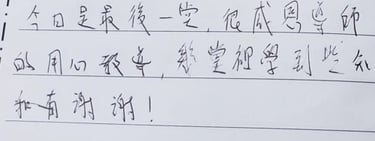 今日是最後一堂，很感恩導師
的用心教導，整堂裡學到些知
和有謝謝！